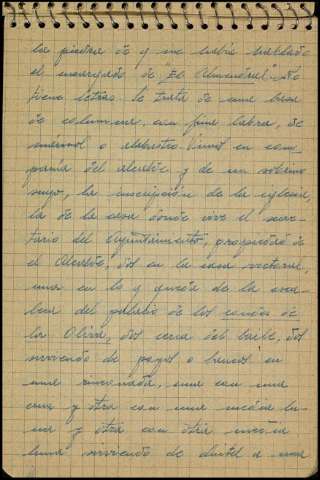 la piedra de y me había hablado
el encargado de "El Almendral". No
tiene letras. Se trata de una basa
de columna, con fina labra, de
mármol o alabastro. Vimos en com
pañía del alcalde y de un sobrino
suyo, la inscripción de la iglesia,
la de la casa donde vive el secre
tario del Ayuntamiento, propiedad de
el Alcalde, dos en la casa rectoral,
una en la y queda de la esca
lera del palacio de los condes de
la Oliva, dos cerca del baile, dos
sirviendo de poyos o bancos en
una encerrada, una con una
cruz y otra con una media lu
na y otra con otra media
luna sirviendo de dintel a una